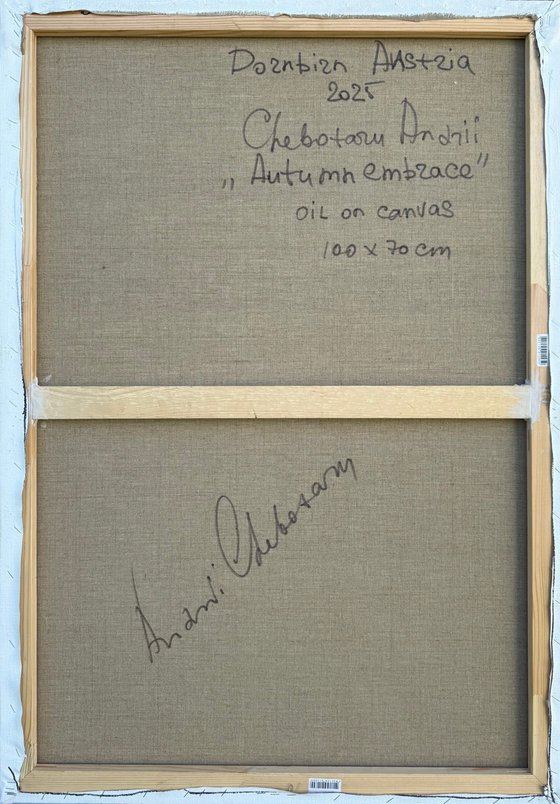 Dornbirn Austria
2025
Chebotaru Andrii
„Autumn embrace”
oil on canvas
100 x 70 cm
Andrii Chebotaru